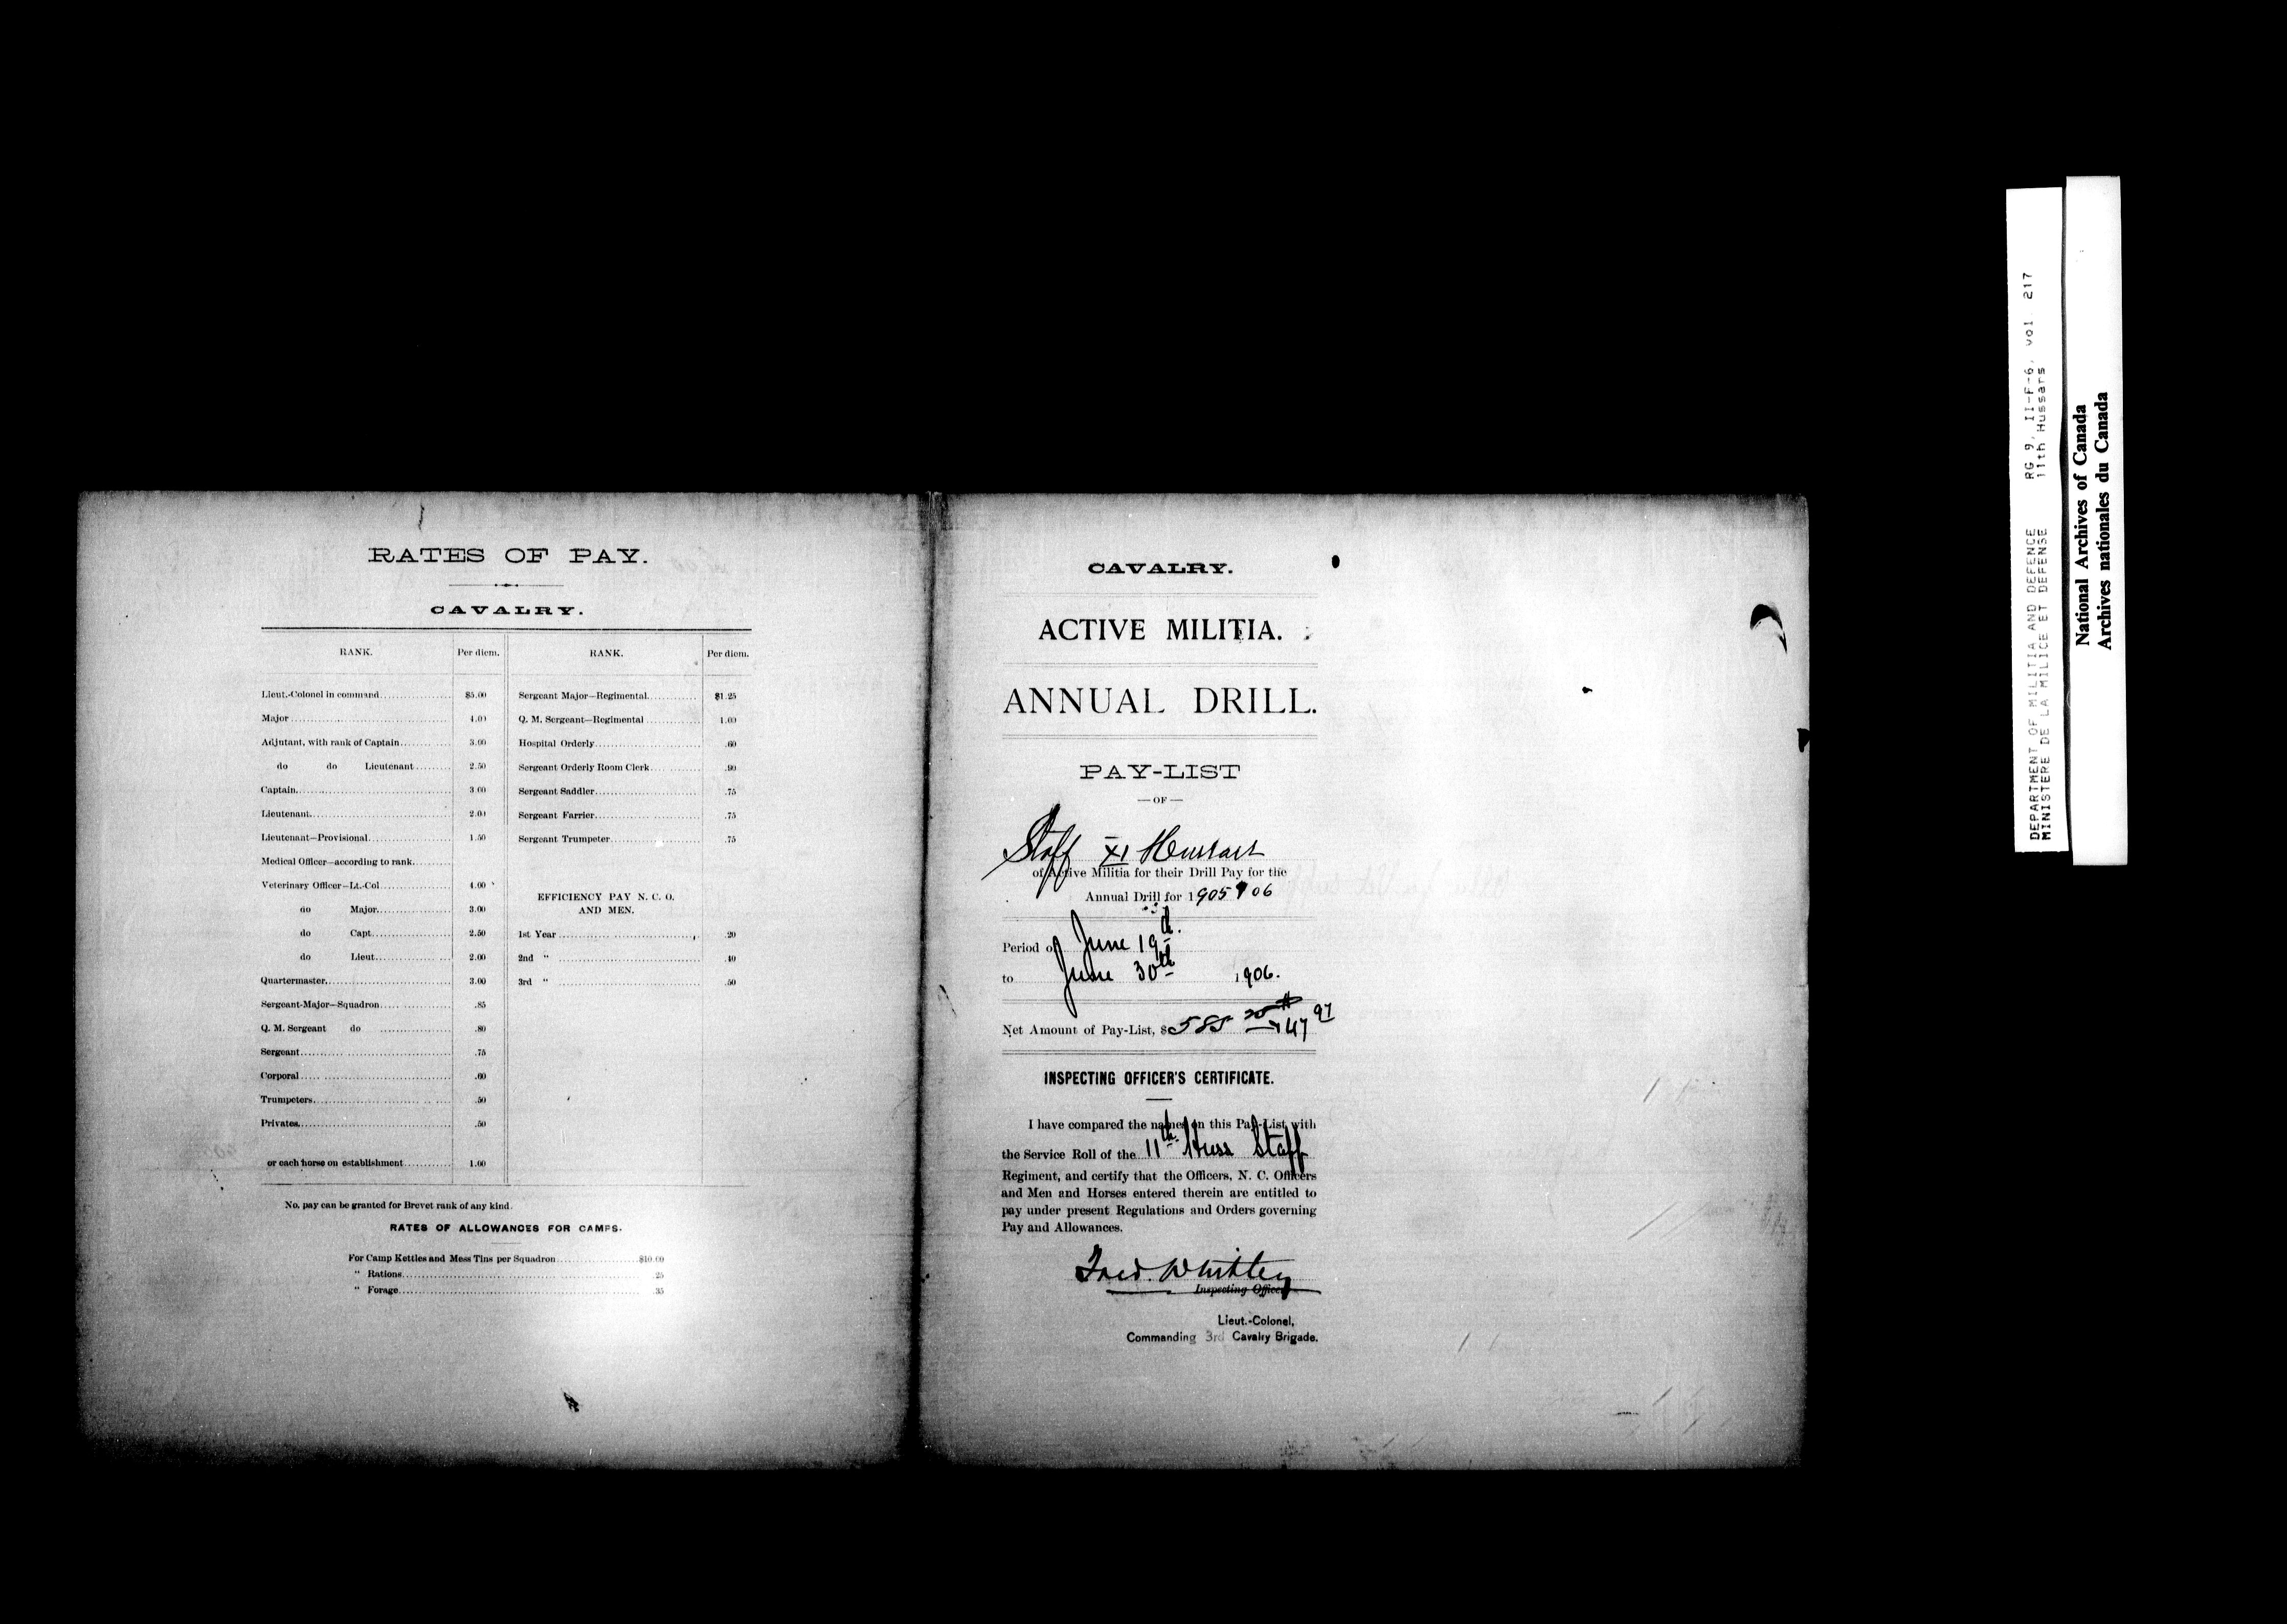 RATES OF PAY.
CAVALRY.
RANK. Per diem. RANK. Per diem.
Lieut.-Colonel in command $5.00 Sergeant Major—Regimental $1.25
Major 4.00 Q. M. Sergeant—Regimental 1.00
Adjutant, with rank of Captain 3.00 Hospital Orderly .60
do do Lieutenant 2.50 Sergeant Orderly Room Clerk .90
Captain 3.00 Sergeant Saddler .75
Lieutenant 2.00 Sergeant Farrier .75
Lieutenant—Provisional 1.50 Sergeant Trumpeter .75
Medical Officer—according to rank
Veterinary Officer—Lt.-Col 4.00
EFFICIENCY PAY N. C. O.
do Major 3.00 AND MEN.
do Capt 2.50 1st Year .20
do Lieut 2.00 2nd " .40
Quartermaster 3.00 3rd " .50
Sergeant-Major—Squadron .85
Q. M. Sergeant do .80
Sergeant .75
Corporal .60
Trumpeters .50
Privates .50
or each horse on establishment 1.00
No. pay can be granted for Brevet rank of any kind.
RATES OF ALLOWANCES FOR CAMPS.
For Camp Kettles and Mess Tins per Squadron $10.00
" Rations 25
" Forage .35
CAVALRY.
ACTIVE MILITIA.
ANNUAL DRILL.
PAY-LIST
—OF—
Staff XI Hussars
of Active Militia for their Drill Pay for the
Annual Drill for 1905 06
Period of June 19th.
to June 30th 1906.
Net Amount of Pay-List, $585
INSPECTING OFFICER'S CERTIFICATE.
I have compared the names in this Pay-List with
the Service Roll of the 11th Huss Staff
Regiment, and certify that the Officers, N. C. Officers
and Men and Horses entered therein are entitled to
pay under present Regulations and Orders governing
Pay and Allowances.
Fred. Whitley
Inspecting Officer
Lieut.-Colonel,
Commanding 3rd Cavalry Brigade.
DEPARTMENT OF MILITIA AND DEFENCE RG 9, II-F-6, vol. 217
MINISTERE DE LA MILICE ET DEFENSE 11th Hussars
National Archives of Canada
Archives nationales du Canada